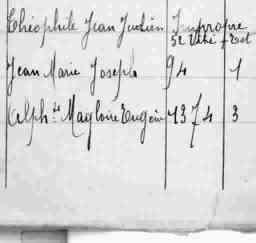 Théophile Jean Julien Impropre
Jean Marie Joseph 94 1
Alph.se Magloire Eugène 1374 3